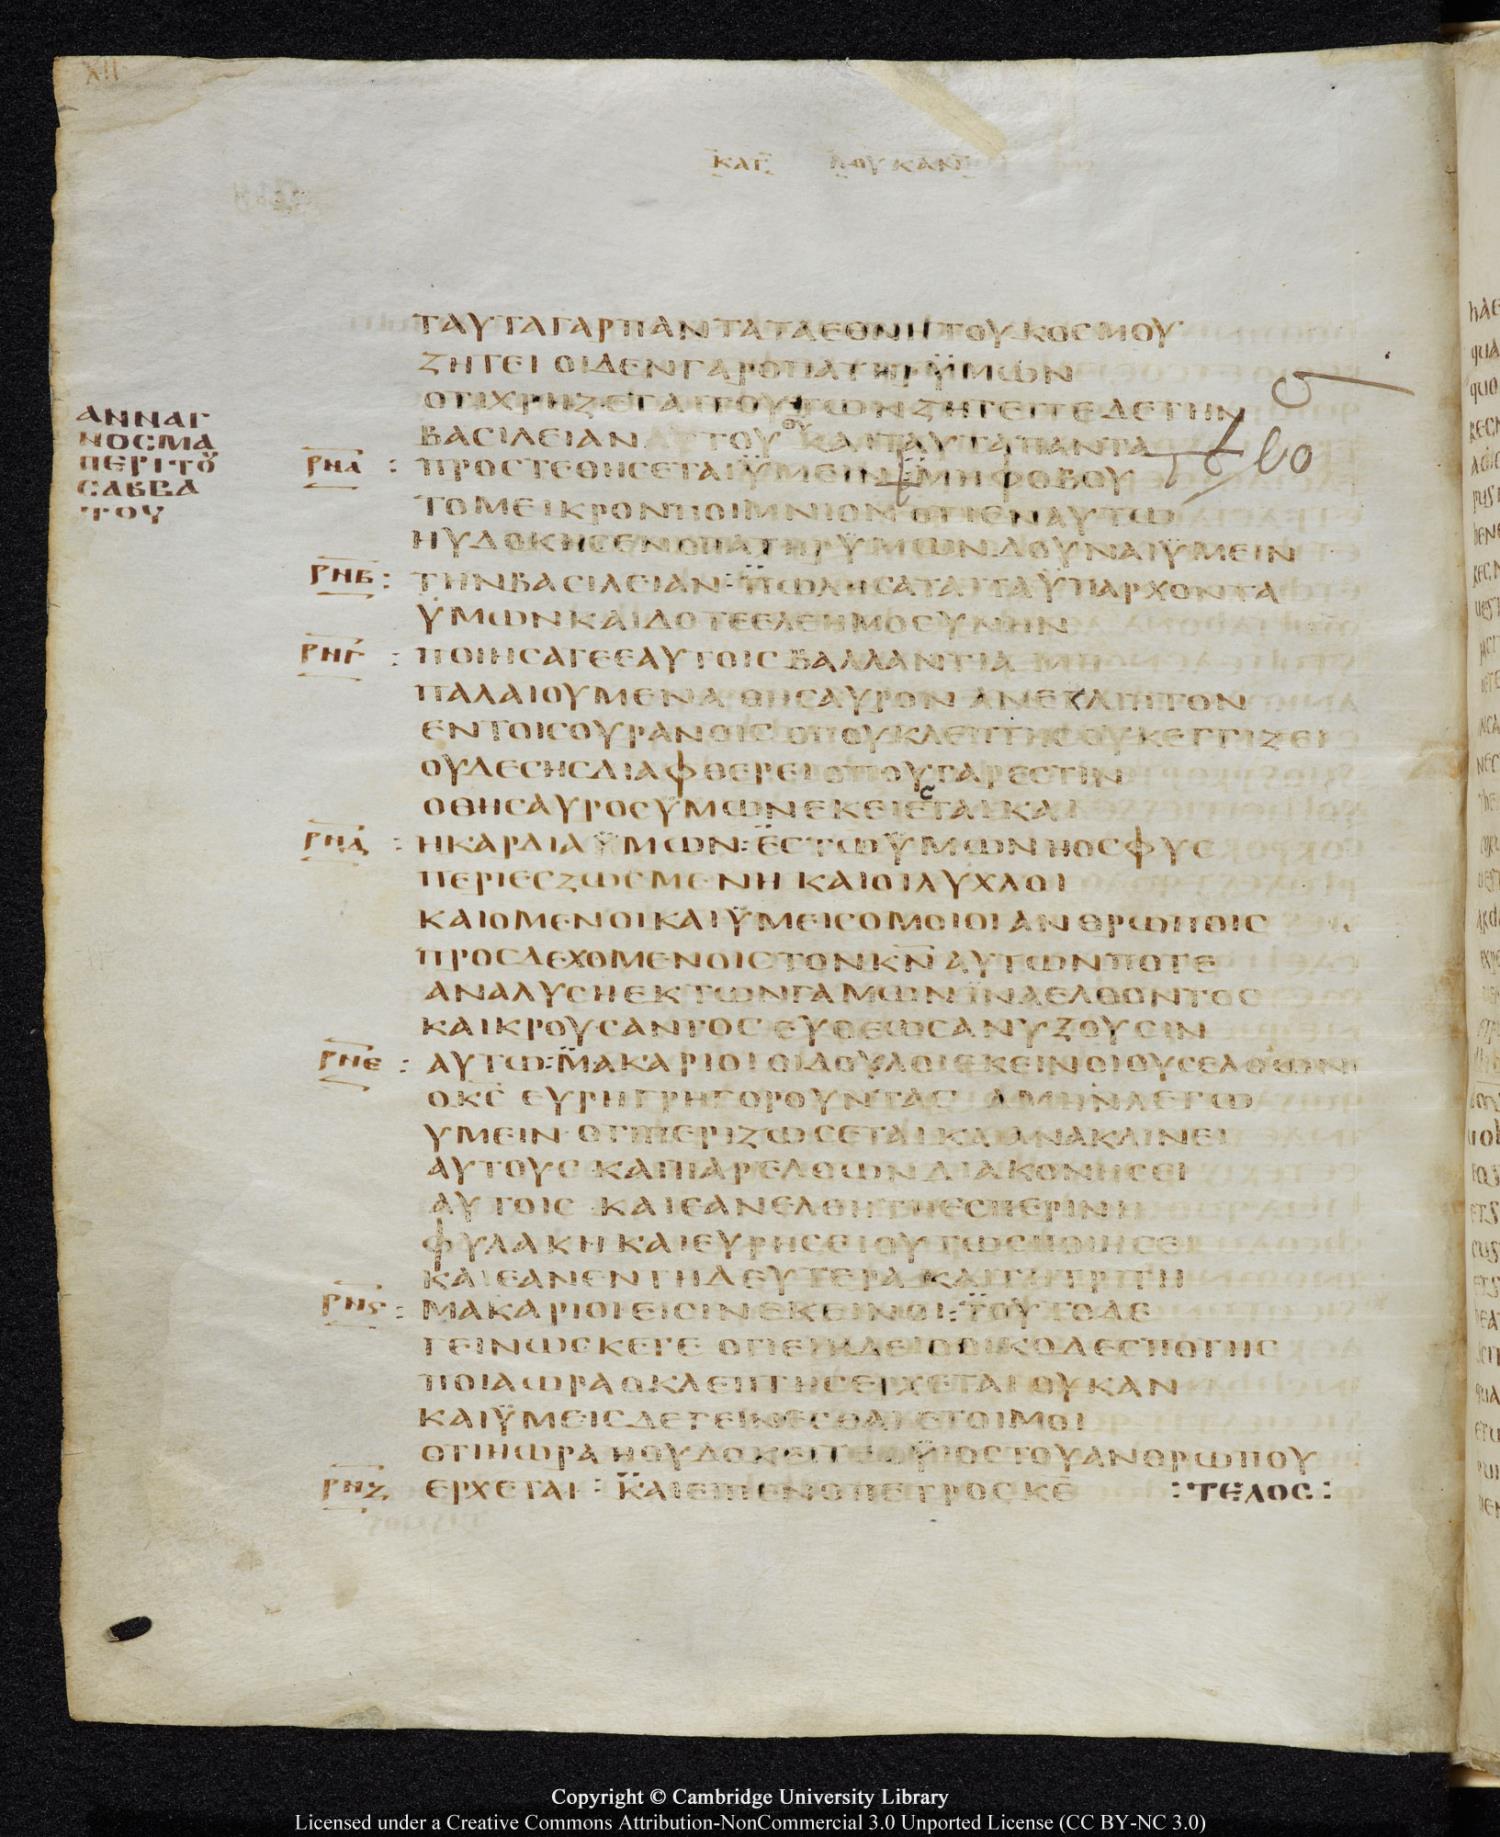 ΧΙΙ
ΚΑΤ ΛΟΥΚΑΝ
ΤΑΥΤΑΓΑΡΠΑΝΤΑΤΑΕΘΝΗΤΟΥΚΟΣΜΟΥ
ΖΗΤΕΙ ΟΙΔΕΝΓΑΡΟΠΑΤΗΡΫΜΩΝ
ΟΤΙΧΡΗΖΕΤΑΙΤΟΥΤΩΝΖΗΤΕΙΤΕΔΕΤΗΝ
ΑΝΝΑΓ
ΝΟΣΜΑ
ΠΕΡΙΤΟΥ
ΣΑΒΒΑ
ΤΟΥ
ΒΑΣΙΛΕΙΑΝΑΥΤΟΥ ΚΑΙΤΑΥΤΑΠΑΝΤΑ
ΡΗΑ : ΠΡΟΣΤΕΘΗΣΕΤΑΙΫΜΕΙΝ ΜΗΦΟΒΟΥ
ΤΟΜΕΙΚΡΟΝΠΟΙΜΝΙΟΝ ΟΤΙΕΝΑΥΤΩ
ΗΥΔΟΚΗΣΕΝΟΠΑΤΗΡΫΜΩΝ ΔΟΥΝΑΙΫΜΕΙΝ
ΡΗΒ : ΤΗΝΒΑΣΙΛΕΙΑΝ: ΠΩΛΗΣΑΤΑΙΤΑΫΠΑΡΧΟΝΤΑ
ΫΜΩΝΚΑΙΔΟΤΕΕΛΕΗΜΟΣΥΝΗΝ
ΡΗΓ : ΠΟΙΗΣΑΤΕΕΑΥΤΟΙΣΒΑΛΛΑΝΤΙΑ ΜΗ
ΠΑΛΑΙΟΥΜΕΝΑ ΘΗΣΑΥΡΟΝ ΑΝΕΚΛΙΠΤΟΝ
ΕΝΤΟΙΣΟΥΡΑΝΟΙΣ ΟΠΟΥΚΛΕΠΤΗΣΟΥΚΕΓΓΙΖΕΙ
ΟΥΔΕΣΗΣΔΙΑΦΘΕΡΕΙ ΟΠΟΥΓΑΡΕΣΤΙΝ
ΟΘΗΣΑΥΡΟΣΫΜΩΝΕΚΕΙΕΣΤΑΙ ΚΑΙ
ΡΗΔ : ΗΚΑΡΔΙΑΫΜΩΝ: ΕΣΤΩΫΜΩΝΗΟΣΦΥΣ
ΠΕΡΙΕΣΖΩΣΜΕΝΗ ΚΑΙΟΙΛΥΧΛΟΙ
ΚΑΙΟΜΕΝΟΙΚΑΙΫΜΕΙΣΟΜΟΙΟΙΑΝΘΡΩΠΟΙΣ
ΠΡΟΣΔΕΧΟΜΕΝΟΙΣΤΟΝΚΝ ΑΥΤΩΝΠΟΤΕ
ΑΝΑΛΥΣΗΕΚΤΩΝΓΑΜΩΝΪΝΑΕΛΘΟΝΤΟΣ
ΚΑΙΚΡΟΥΣΑΝΤΟΣ ΕΥΘΕΩΣΑΝΥΖΟΥΣΙΝ
ΡΗΕ : ΑΥΤΩ: ΜΑΚΑΡΙΟΙΟΙΔΟΥΛΟΙΕΚΕΙΝΟΙΟΥΣΕΛΘΩΝ
ΟΚΣ ΕΥΡΗΓΡΗΓΟΡΟΥΝΤΑΣ ΑΜΗΝΛΕΓΩ
ΥΜΕΙΝ ΟΤΙΠΕΡΙΖΩΣΕΤΑΙΚΑΙΑΝΑΚΛΙΝΕΙ
ΑΥΤΟΥΣ ΚΑΙΠΑΡΕΛΘΩΝΔΙΑΚΟΝΗΣΕΙ
ΑΥΤΟΙΣ ΚΑΙΕΑΝΕΛΘΗΤΗΕΣΠΕΡΙΝΗ
ΦΥΛΑΚΗΚΑΙΕΥΡΗΣΕΙΟΥΤΩΣΠΟΙΗΣΕΙ
ΚΑΙΕΑΝΕΝΤΗΔΕΥΤΕΡΑ ΚΑΙΤΗΤΡΙΤΗ
ΡΗϚ : ΜΑΚΑΡΙΟΙΕΙΣΙΝΕΚΕΙΝΟΙ: ΤΟΥΤΟΔΕ
ΓΕΙΝΩΣΚΕΤΕ ΟΤΙΕΙΗΔΕΙΟΟΙΚΟΔΕΣΠΟΤΗΣ
ΠΟΙΑΩΡΑΟΚΛΕΠΤΗΣΕΡΧΕΤΑΙ ΟΥΚΑΝ
ΚΑΙΫΜΕΙΣΔΕΓΕΙΝΕΣΘΑΙ ΕΤΟΙΜΟΙ
ΟΤΙΗΩΡΑ ΗΟΥΔΟΚΕΙΤΕΟΫΙΟΣΤΟΥΑΝΘΡΩΠΟΥ
ΡΗΖ ΕΡΧΕΤΑΙ: ΚΑΙΕΙΠΕΝΟΠΕΤΡΟΣΚΕ :ΤΕΛΟΣ:
Copyright © Cambridge University Library
Licensed under a Creative Commons Attribution-NonCommercial 3.0 Unported License (CC BY-NC 3.0)